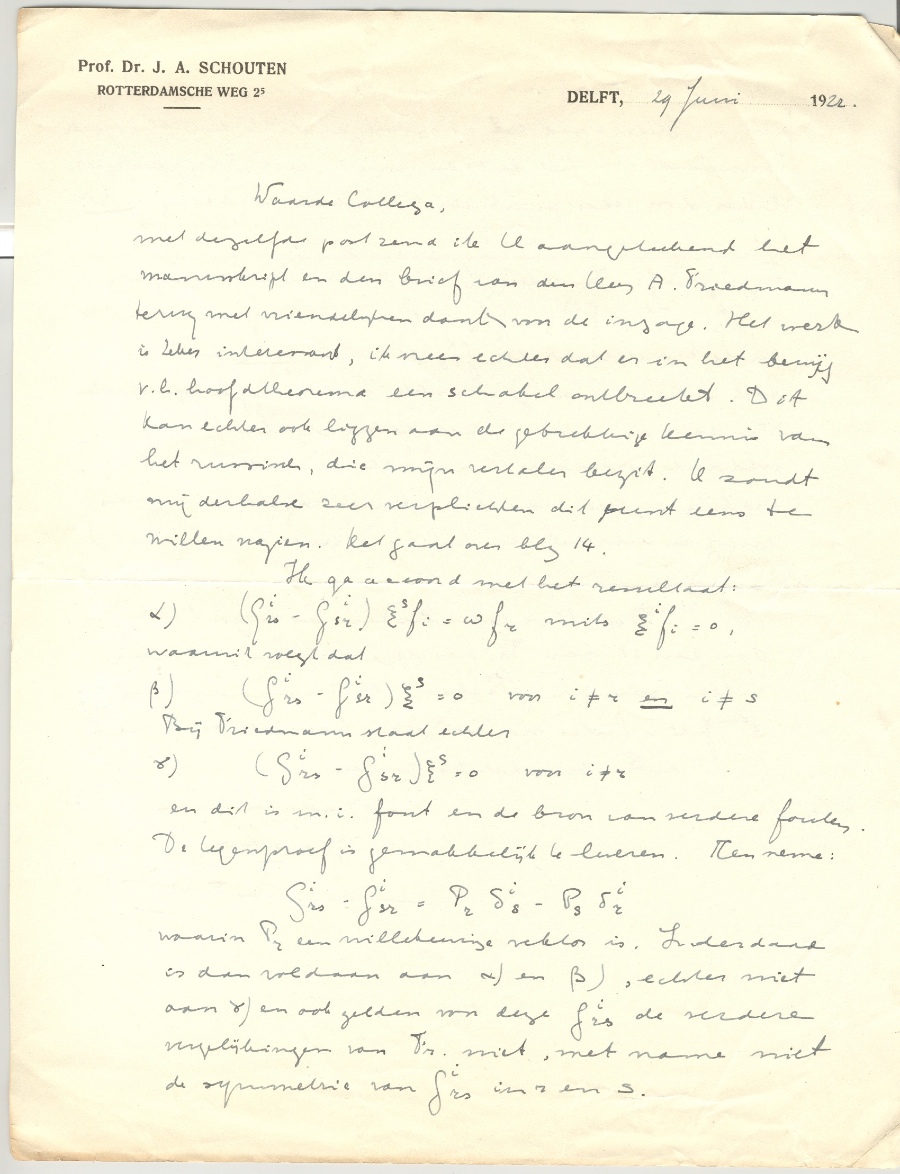 Prof. Dr. J. A. SCHOUTEN
ROTTERDAMSCHE WEG 2⁵
DELFT, 29 Juni 1922.
Waarde Collega,
met dezelfde post zend ik U aangeteekend het
manuskript en den brief van den Heer A. Friedmann
terug met vriendelijken dank voor de inzage. Het werk
is zeker interessant, ik vrees echter dat er in het bewijs
v.h. hoofdtheorema een schakel ontbreekt. Dit
kan echter ook liggen aan de gebrekkige kennis van
het russisch, die mijn vertaler bezit. U zoudt
mij derhalve zeer verplichten dit punt eens te
willen nazien. Het gaat over blz 14.
Ik ga accoord met het resultaat:
α) (ζⁱᵣₛ - ζⁱₛᵣ) ξˢfᵢ = ω fᵣ mits ξⁱfᵢ = 0,
waaruit volgt dat
β) (ζⁱᵣₛ - ζⁱₛᵣ) ξˢ = 0 voor i ≠ r en i ≠ s
Bij Friedmann staat echter
γ) (ζⁱᵣₛ - ζⁱₛᵣ) ξˢ = 0 voor i ≠ r
en dit is m.i. fout en de bron van verdere fouten.
De tegenproef is gemakkelijk te leveren. Men neme:
ζⁱᵣₛ - ζⁱₛᵣ = Pᵣ δⁱₛ - Pₛ δⁱᵣ
waarin Pᵣ een willekeurige vektor is. Inderdaad
is dan voldaan aan α) en β), echter niet
aan γ) en ook gelden voor deze ζⁱᵣₛ de verdere
vergelijkingen van Fr. niet, met name niet
de symmetrie van ζⁱᵣₛ in r en s.